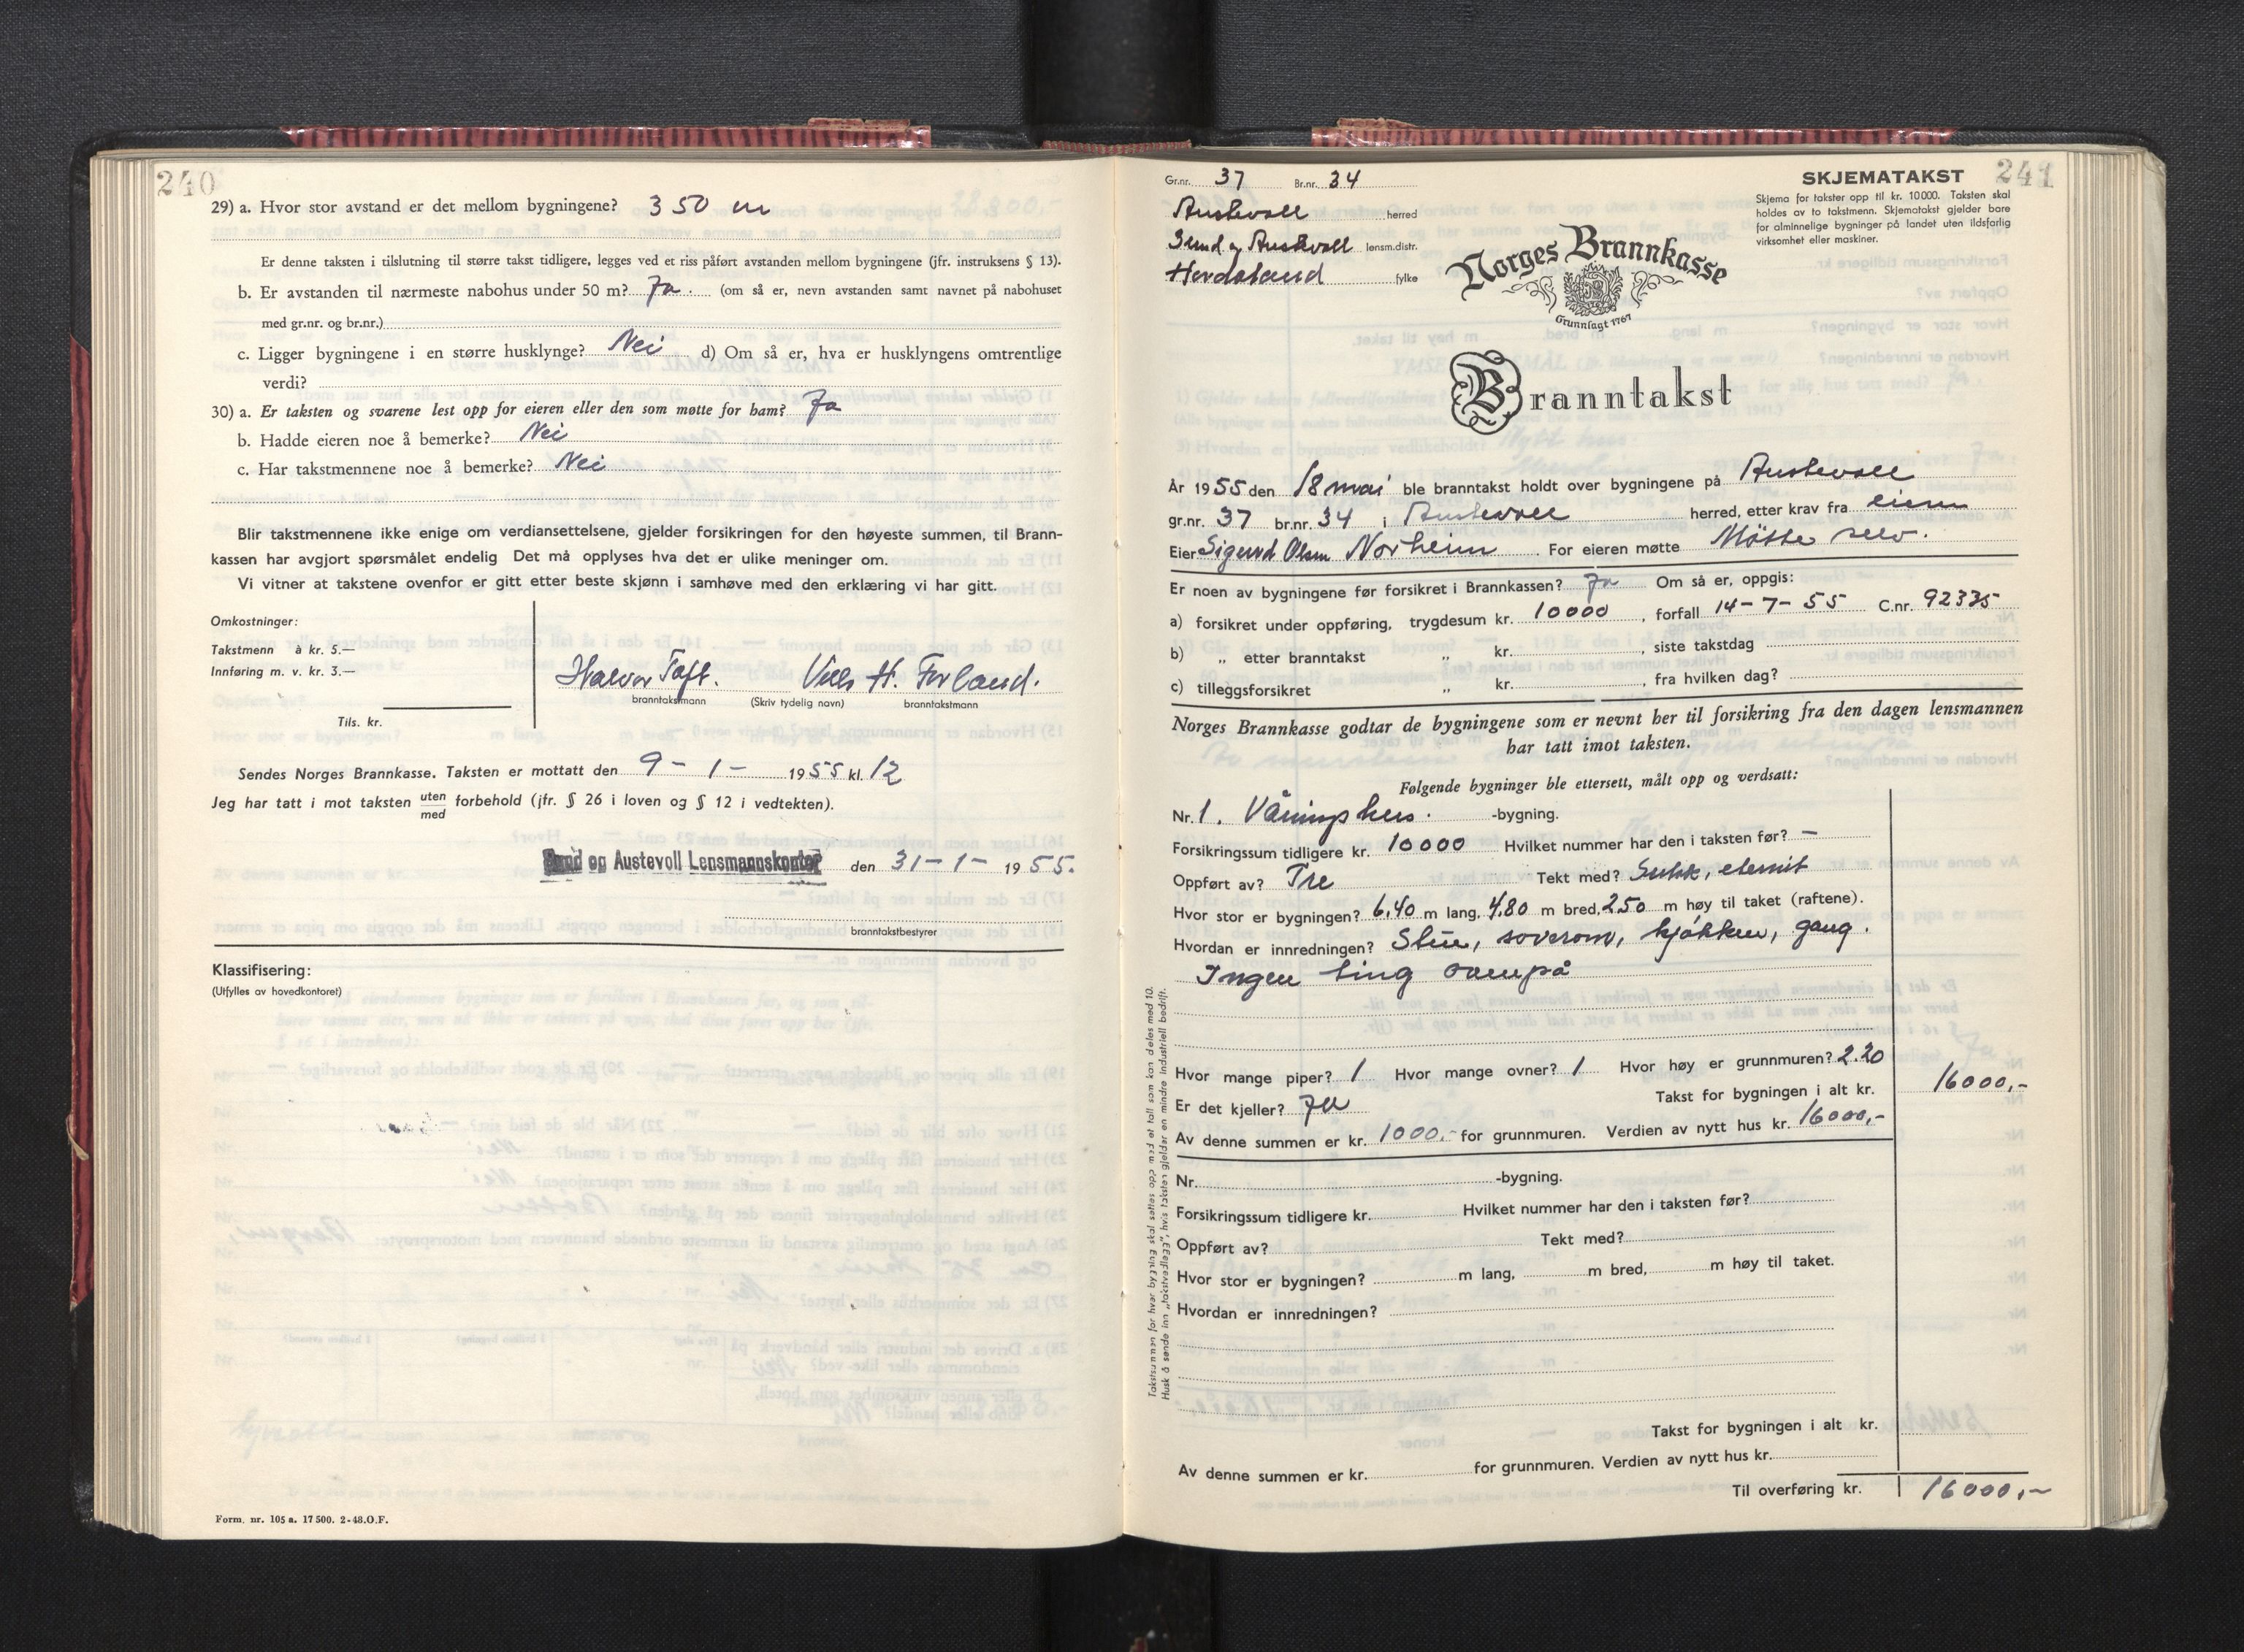 240
29) a. Hvor stor avstand er det mellom bygningene? 350 m
Er denne taksten i tilslutning til større takst tidligere, legges ved et riss påført avstanden mellom bygningene (jfr. instruksens § 13).
b. Er avstanden til nærmeste nabohus under 50 m? Ja. (om så er, nevn avstanden samt navnet på nabohuset
med gr.nr. og br.nr.)
c. Ligger bygningene i en større husklynge? Nei d) Om så er, hva er husklyngens omtrentlige
verdi?
30) a. Er taksten og svarene lest opp for eieren eller den som møtte for ham? Ja
b. Hadde eieren noe å bemerke? Nei
c. Har takstmennene noe å bemerke? Nei
Blir takstmennene ikke enige om verdiansettelsene, gjelder forsikringen for den høyeste summen, til Brann-
kassen har avgjort spørsmålet endelig Det må opplyses hva det er ulike meninger om.
Vi vitner at takstene ovenfor er gitt etter beste skjønn i samhøve med den erklæring vi har gitt.
Omkostninger:
Takstmenn à kr. 5.—
Innføring m. v. kr. 3.—
Tils. kr.
Halvor Toft. H. Forland.
branntakstmann (Skriv tydelig navn) branntakstmann
Sendes Norges Brannkasse. Taksten er mottatt den 9 - 1 - 1955 kl. 12
Jeg har tatt i mot taksten uten forbehold (jfr. § 26 i loven og § 12 i vedtekten).
med
Sund og Austevoll Lensmannskontor den 31 - 1 - 1955.
branntakstbestyrer
Klassifisering:
(Utfylles av hovedkontoret)
Form. nr. 105 a. 17 500. 2-48.O.F.
241
SKJEMATAKST
Skjema for takster opp til kr. 10000. Taksten skal
holdes av to takstmenn. Skjematakst gjelder bare
for alminnelige bygninger på landet uten ildsfarlig
virksomhet eller maskiner.
Gr.nr. 37 Br.nr. 34
Austevoll herred
Sund og Austevoll lensm.distr.
Hordaland fylke
Norges Brannkasse
Grunnlagt 1767
Branntakst
År 1955 den 18 mai ble branntakst holdt over bygningene på Austevoll
gr.nr. 37 br.nr. 34 i Austevoll herred, etter krav fra eieren
Eier Sigurd Olsen Norheim. For eieren møtte Møtte selv.
Er noen av bygningene før forsikret i Brannkassen? Ja Om så er, oppgis:
a) forsikret under oppføring, trygdesum kr. 10000, forfall 14-7-55 C.nr. 92335
b) „ etter branntakst „ kr. , siste takstdag
c) tilleggsforsikret „ kr. , fra hvilken dag?
Norges Brannkasse godtar de bygningene som er nevnt her til forsikring fra den dagen lensmannen
har tatt imot taksten.
Følgende bygninger ble ettersett, målt opp og verdsatt:
Nr. 1. Våningshus. -bygning.
Forsikringssum tidligere kr. 10000 Hvilket nummer har den i taksten før? —
Oppført av? Tre Tekt med? Sutak, eternit
Hvor stor er bygningen? 6,40 m lang, 4,80 m bred, 2,50 m høy til taket (raftene).
Hvordan er innredningen? Stue, soverom, kjøkken, gang.
Ingen ting ovenpå
Hvor mange piper? 1 Hvor mange ovner? 1 Hvor høy er grunnmuren? 2.20
Er det kjeller? Ja Takst for bygningen i alt kr. 16000,-
Av denne summen er kr. 1000,- for grunnmuren. Verdien av nytt hus kr. 16000,-
Nr. -bygning.
Forsikringssum tidligere kr. Hvilket nummer har den i taksten før?
Oppført av? Tekt med?
Hvor stor er bygningen? m lang, m bred, m høy til taket.
Hvordan er innredningen?
Takst for bygningen i alt kr.
Av denne summen er kr. for grunnmuren. Verdien av nytt hus kr.
Til overføring kr. 16000,-
Takstsummen for hver bygning skal settes opp med et tall som kan deles med 10.
Husk å sende inn „takstvedlegg", hvis taksten gjelder en mindre industriell bedrift.